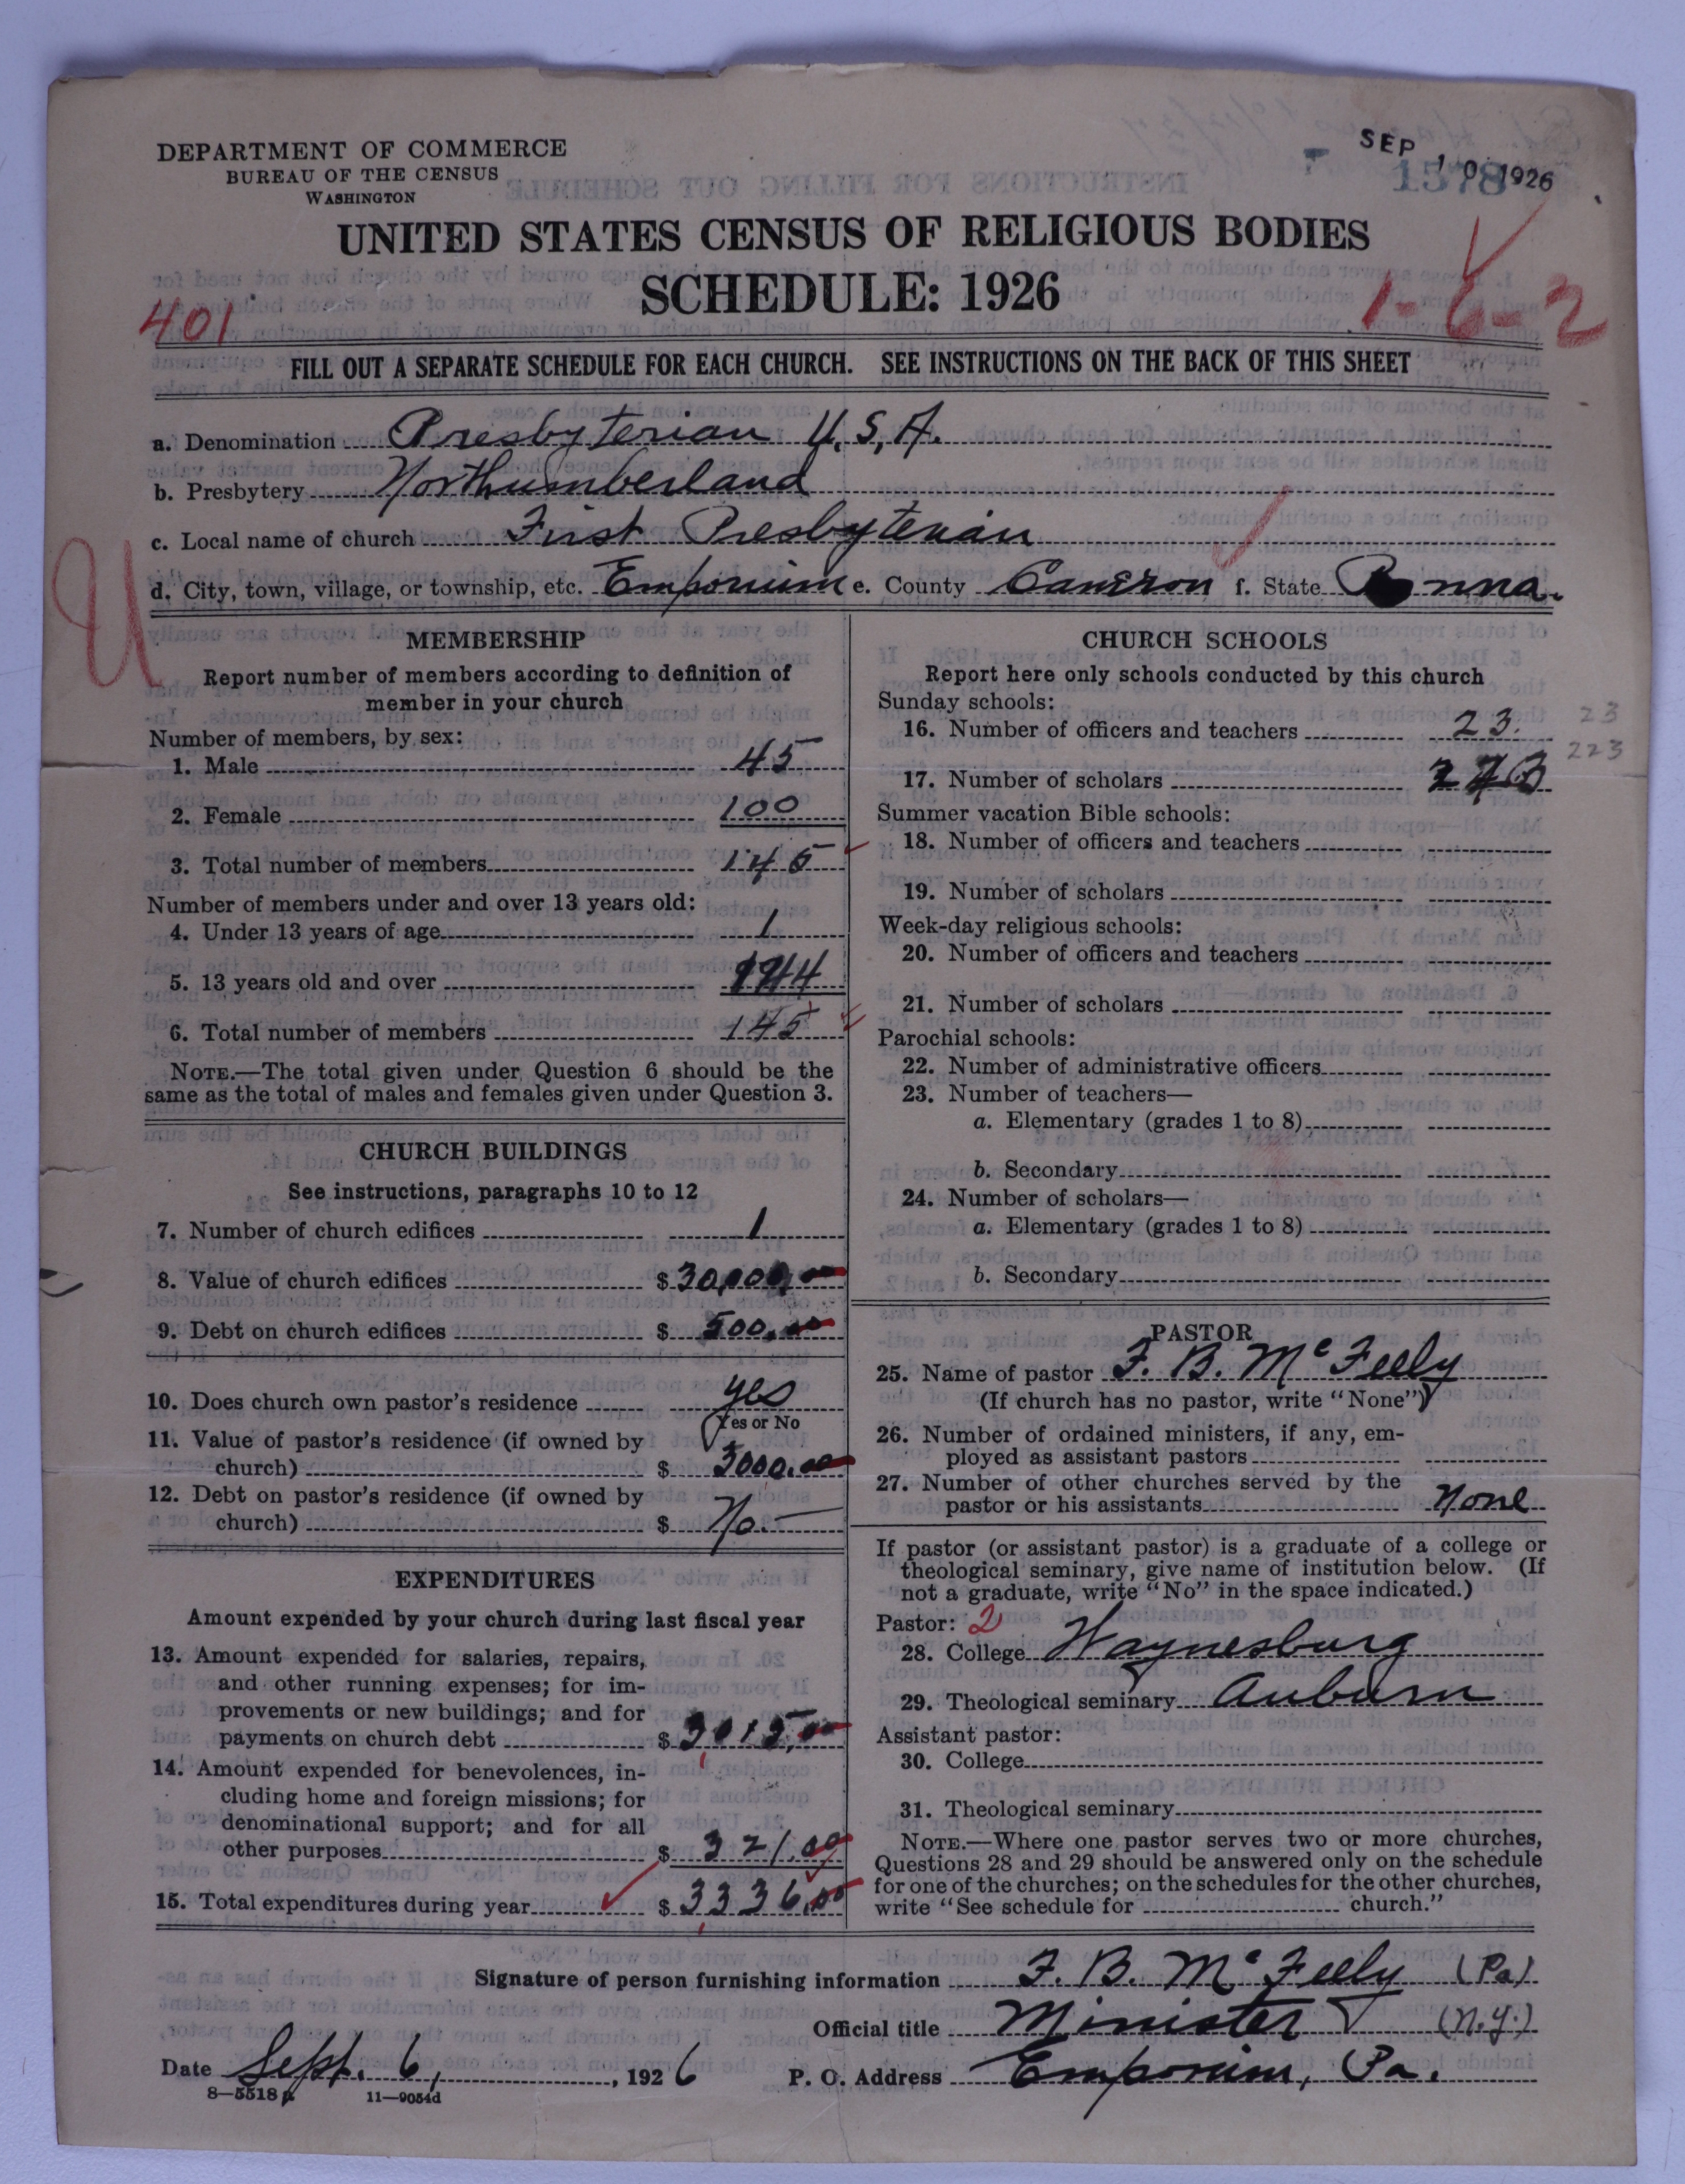 DEPARTMENT OF COMMERCE
BUREAU OF THE CENSUS
WASHINGTON
SEP 10 1926
1578
UNITED STATES CENSUS OF RELIGIOUS BODIES
SCHEDULE: 1926
401
1-6-2
FILL OUT A SEPARATE SCHEDULE FOR EACH CHURCH. SEE INSTRUCTIONS ON THE BACK OF THIS SHEET
a. Denomination Presbyterian U.S.A.
b. Presbytery Northumberland
c. Local name of church First Presbyterian
d. City, town, village, or township, etc. Emporium e. County Cameron f. State Penna.
U
MEMBERSHIP
Report number of members according to definition of
member in your church
Number of members, by sex:
1. Male 45
2. Female 100
3. Total number of members 145
Number of members under and over 13 years old:
4. Under 13 years of age 1
5. 13 years old and over 144
6. Total number of members 145
NOTE.—The total given under Question 6 should be the
same as the total of males and females given under Question 3.
CHURCH BUILDINGS
See instructions, paragraphs 10 to 12
7. Number of church edifices 1
8. Value of church edifices $ 30,000.00
9. Debt on church edifices $ 500.00
10. Does church own pastor's residence yes
Yes or No
11. Value of pastor's residence (if owned by
church) $ 3000.00
12. Debt on pastor's residence (if owned by
church) $ No.—
EXPENDITURES
Amount expended by your church during last fiscal year
13. Amount expended for salaries, repairs,
and other running expenses; for im-
provements or new buildings; and for
payments on church debt $ 3015.00
14. Amount expended for benevolences, in-
cluding home and foreign missions; for
denominational support; and for all
other purposes $ 321.00
15. Total expenditures during year $ 3336.00
CHURCH SCHOOLS
Report here only schools conducted by this church
Sunday schools:
16. Number of officers and teachers 23. 23
17. Number of scholars 223
Summer vacation Bible schools:
18. Number of officers and teachers
19. Number of scholars
Week-day religious schools:
20. Number of officers and teachers
21. Number of scholars
Parochial schools:
22. Number of administrative officers
23. Number of teachers—
a. Elementary (grades 1 to 8)
b. Secondary
24. Number of scholars—
a. Elementary (grades 1 to 8)
b. Secondary
PASTOR
25. Name of pastor F. B. McFeely
(If church has no pastor, write "None")
26. Number of ordained ministers, if any, em-
ployed as assistant pastors
27. Number of other churches served by the
pastor or his assistants None
If pastor (or assistant pastor) is a graduate of a college or
theological seminary, give name of institution below. (If
not a graduate, write "No" in the space indicated.)
Pastor: 2
28. College Waynesburg
29. Theological seminary Auburn
Assistant pastor:
30. College
31. Theological seminary
NOTE.—Where one pastor serves two or more churches,
Questions 28 and 29 should be answered only on the schedule
for one of the churches; on the schedules for the other churches,
write "See schedule for church."
Signature of person furnishing information F. B. McFeely (Pa)
Official title Minister (N.Y.)
Date Sept. 6, 1926 P. O. Address Emporium, Pa.
8—5518 11—9054d